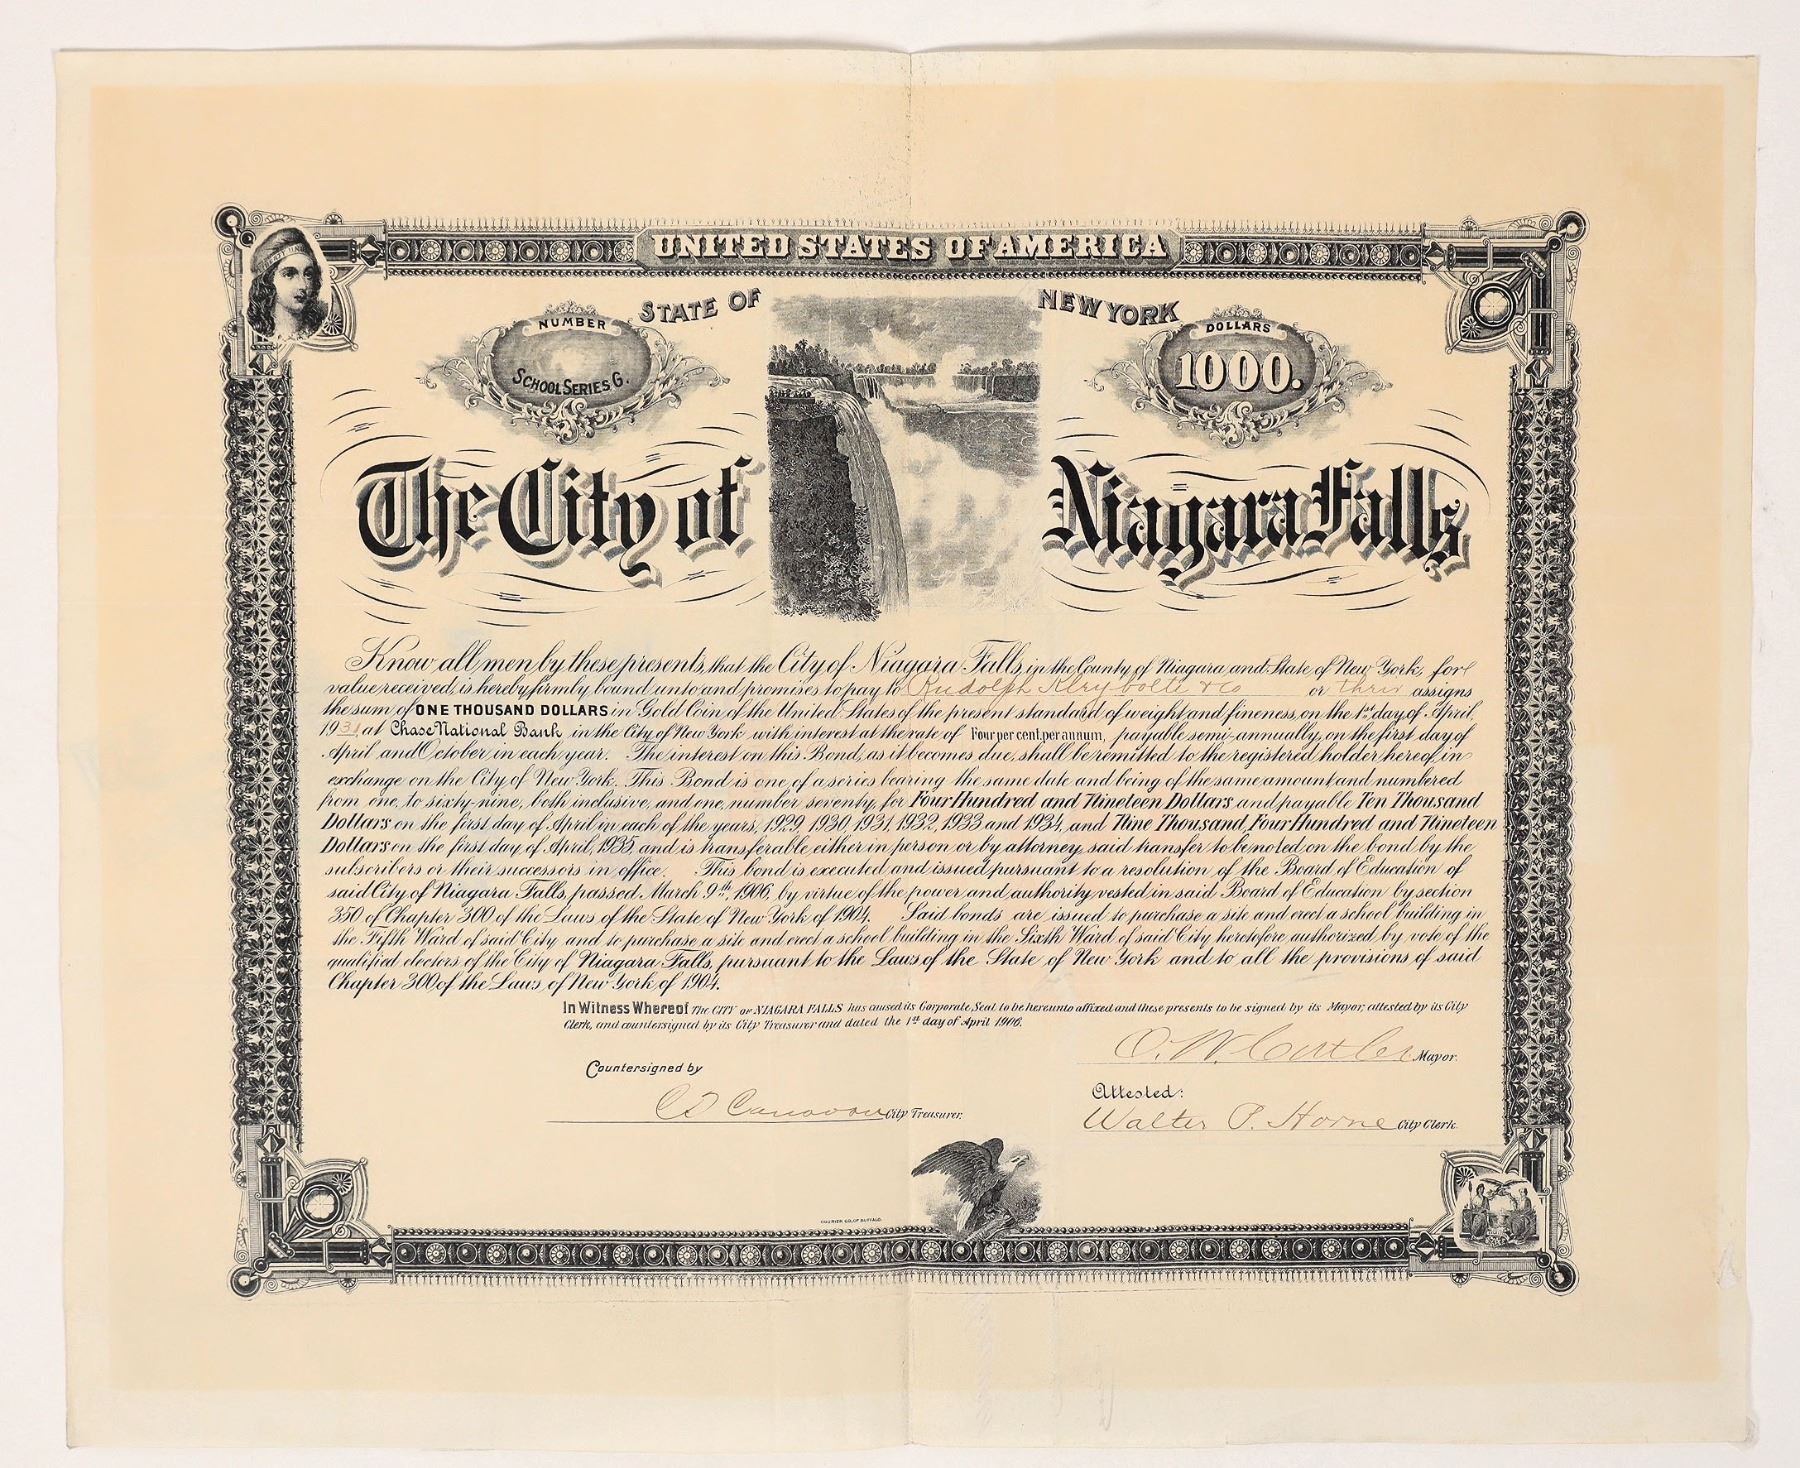 UNITED STATES OF AMERICA
STATE OF NEW YORK
NUMBER
SCHOOL SERIES G.
DOLLARS
1000.
The City of Niagara Falls
Know all men by these presents, that the City of Niagara Falls, in the County of Niagara and State of New York, for
value received, is hereby firmly bound unto and promises to pay to Rudolph & Co or assigns
the sum of ONE THOUSAND DOLLARS in Gold Coin of the United States of the present standard of weight and fineness, on the 1st day of April,
1931, at Chase National Bank in the City of New York with interest at the rate of Four per cent. per annum, payable semi-annually, on the first day of
April and October in each year. The interest on this Bond, as it becomes due, shall be remitted to the registered holder hereof, in
exchange on the City of New York. This Bond is one of a series bearing the same date and being of the same amount and numbered
from one, to sixty-nine, both inclusive, and one, number seventy, for Four Hundred and Nineteen Dollars, and payable Ten Thousand
Dollars on the first day of April in each of the years, 1929, 1930, 1931, 1932, 1933 and 1934, and Nine Thousand, Four Hundred and Nineteen
Dollars on the first day of April, 1935, and is transferable either in person or by attorney, said transfer to be noted on the bond by the
subscribers or their successors in office. This bond is executed and issued pursuant to a resolution of the Board of Education of
said City of Niagara Falls, passed March 9th 1906, by virtue of the power and authority vested in said Board of Education by section
350 of Chapter 300 of the Laws of the State of New York of 1904. Said bonds are issued to purchase a site and erect a school building in
the Fifth Ward of said City and to purchase a site and erect a school building in the Sixth Ward of said City heretofore authorized by vote of the
qualified electors of the City of Niagara Falls, pursuant to the Laws of the State of New York and to all the provisions of said
Chapter 300 of the Laws, of New York of 1904.
In Witness Whereof The CITY OF NIAGARA FALLS has caused its Corporate Seal to be hereunto affixed and these presents to be signed by its Mayor, attested by its City
Clerk, and countersigned by its City Treasurer and dated the 1st day of April 1906.
O. W. Cutler Mayor.
Countersigned by
Attested:
C D Canavan City Treasurer.
Walter P. Horne City Clerk.
COURIER CO. OF BUFFALO.